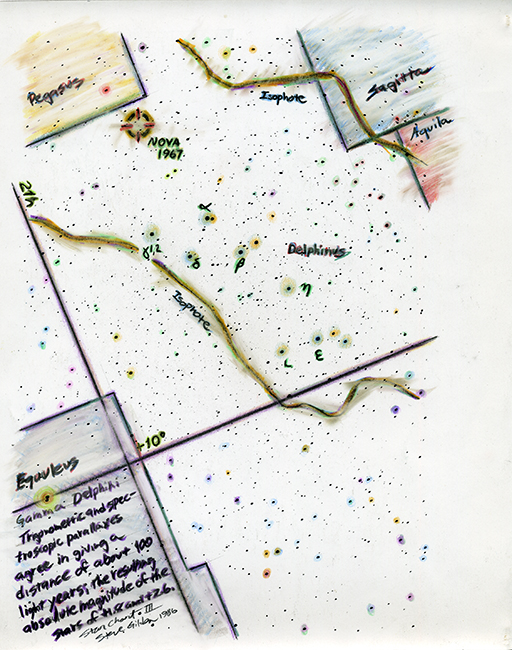 Pegasus
Isophote
Sagitta
Aquila
NOVA
1967
21h
α
γ1,2
δ
β
Delphinus
η
Isophote
ι
ε
+10°
Equuleus
Gamma Delphini
Trigonometric and spec-
troscopic parallaxes
agree in giving a
distance of about 100
light years; the resulting
absolute magnitude of the
stars of +1.8 and +2.6.
Star Chart III
1986